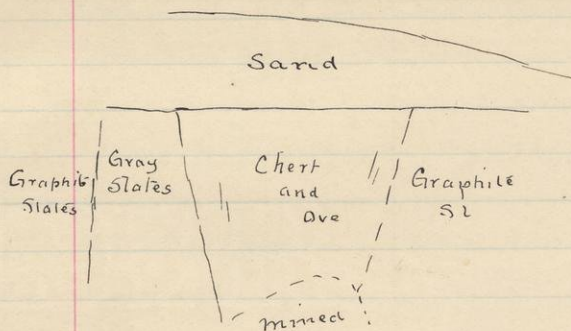 Sand
Graphite
Slates
Gray
Slates
Chert
and
Ore
Graphite
Sl
mined